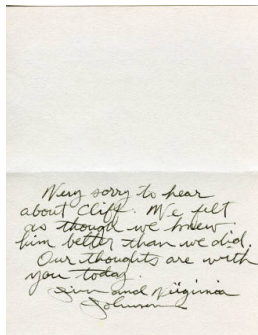 Very sorry to hear
about Cliff. We felt
as though we knew
him better than we did.
Our thoughts are with
you today.
Jim and Virginia
Johnson